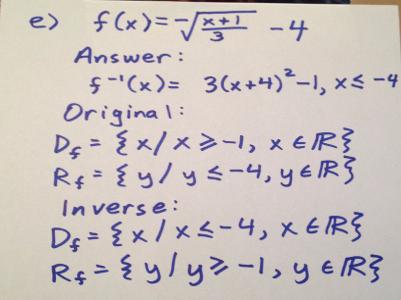 e) f(x) = -√((x+1)/3) - 4
Answer:
f⁻¹(x) = 3(x+4)² - 1, x ≤ -4
Original:
D_f = {x / x ≥ -1, x ∈ ℝ}
R_f = {y / y ≤ -4, y ∈ ℝ}
Inverse:
D_f = {x / x ≤ -4, x ∈ ℝ}
R_f = {y / y ≥ -1, y ∈ ℝ}